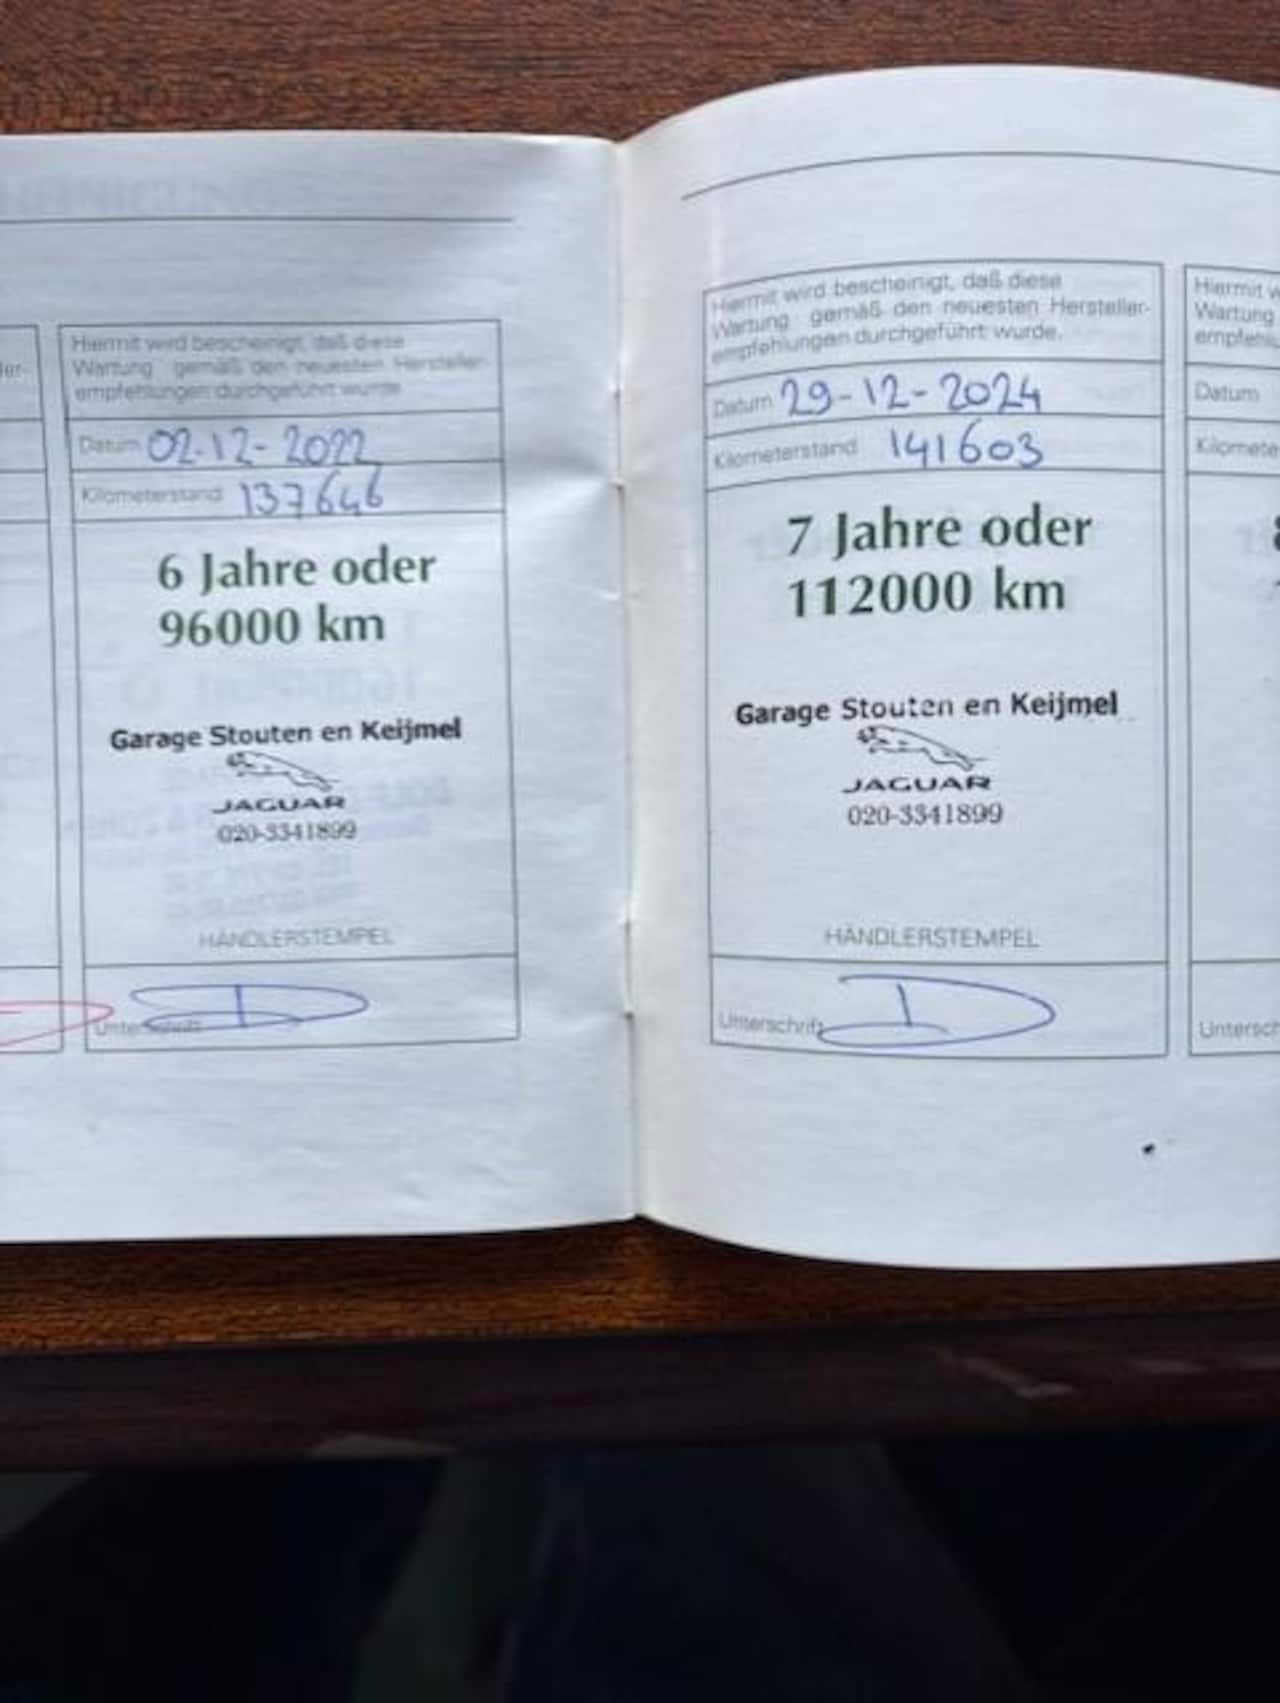 ler-
Hiermit wird bescheinigt, daß diese
Wartung gemäß den neuesten Hersteller-
empfehlungen durchgeführt wurde
Datum 02-12-2022
Kilometerstand 137646
6 Jahre oder
96000 km
Garage Stouten en Keijmel
JAGUAR
020-3341899
HÄNDLERSTEMPEL
Unterschrift
Hiermit wird bescheinigt, daß diese
Wartung gemäß den neuesten Hersteller-
empfehlungen durchgeführt wurde.
Datum 29-12-2024
Kilometerstand 141603
7 Jahre oder
112000 km
Garage Stouten en Keijmel
JAGUAR
020-3341899
HÄNDLERSTEMPEL
Unterschrift
Hiermit w
Wartung
empfehlu
Datum
Kilomete
Untersch